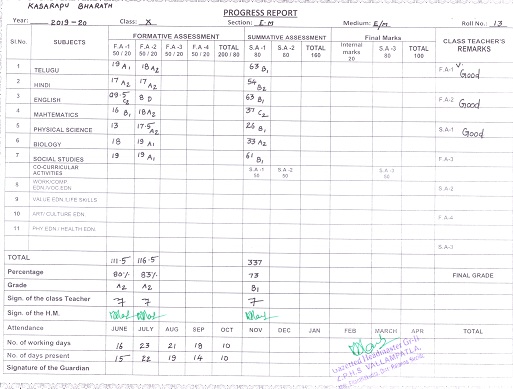 KADARAPU BHARATH
PROGRESS REPORT
Year: 2019-20 Class: X Section: E-M Medium: E/M Roll No.: 13
Sl.No. SUBJECTS FORMATIVE ASSESSMENT SUMMATIVE ASSESSMENT Final Marks CLASS TEACHER'S REMARKS
F.A -1 50 / 20 F.A -2 50 / 20 F.A -3 50 / 20 F.A -4 50 / 20 TOTAL 200 / 80 S.A -1 80 S.A -2 80 TOTAL 160 Internal marks 20 S.A -3 80 TOTAL 100
1 TELUGU 19 A1 18 A2 63 B1 F.A-1 Good
2 HINDI 17 A2 17 A2 54 B2
3 ENGLISH 09.5 C2 8 D 63 B1 F.A-2 Good
4 MAHTEMATICS 16 B1 18 A2 37 C2
5 PHYSICAL SCIENCE 13 17.5 A2 26 B1 S.A-1 Good
6 BIOLOGY 18 19 A1 33 A2
7 SOCIAL STUDIES 19 19 A1 61 B1 F.A-3
CO-CURRICULAR ACTIVITIES S.A -1 50 S.A -2 50 S.A -3 50
8 WORK/COMP. EDN./VOC.EDN S.A-2
9 VALUE EDN./LIFE SKILLS
10 ART/ CULTURE EDN. F.A-4
11 PHY.EDN / HEALTH EDN.
S.A-3
TOTAL 111.5 116.5 337
Percentage 80% 83% 73 FINAL GRADE
Grade A2 A2 B1
Sign. of the class Teacher
Sign. of the H.M.
Attendance JUNE JULY AUG SEP OCT NOV DEC JAN FEB MARCH APR TOTAL
No. of working days 16 23 21 18 10
No. of days present 15 22 19 14 10
Signature of the Guardian
Gazetted Headmaster Gr-II
Z.P.H.S. VALLAMPATLA,